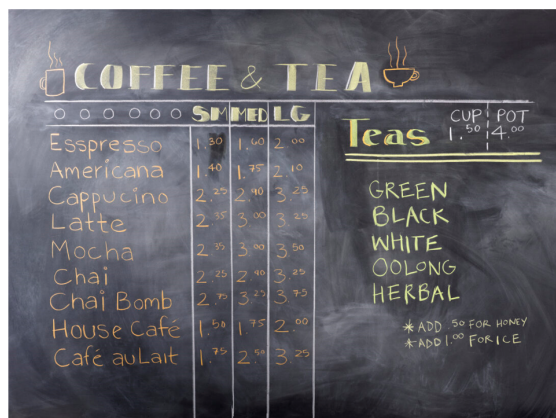 COFFEE & TEA
SM MED LG
Esspresso 1.30 1.60 2.00
Americana 1.40 1.75 2.10
Cappucino 2.25 2.90 3.25
Latte 2.35 3.00 3.25
Mocha 2.35 3.00 3.50
Chai 2.25 2.90 3.25
Chai Bomb 2.75 3.25 3.75
House Café 1.50 1.75 2.00
Café auLait 1.75 2.50 3.25
Teas
CUP POT
1.50 4.00
GREEN
BLACK
WHITE
OOLONG
HERBAL
*ADD .50 FOR HONEY
*ADD 1.00 FOR ICE